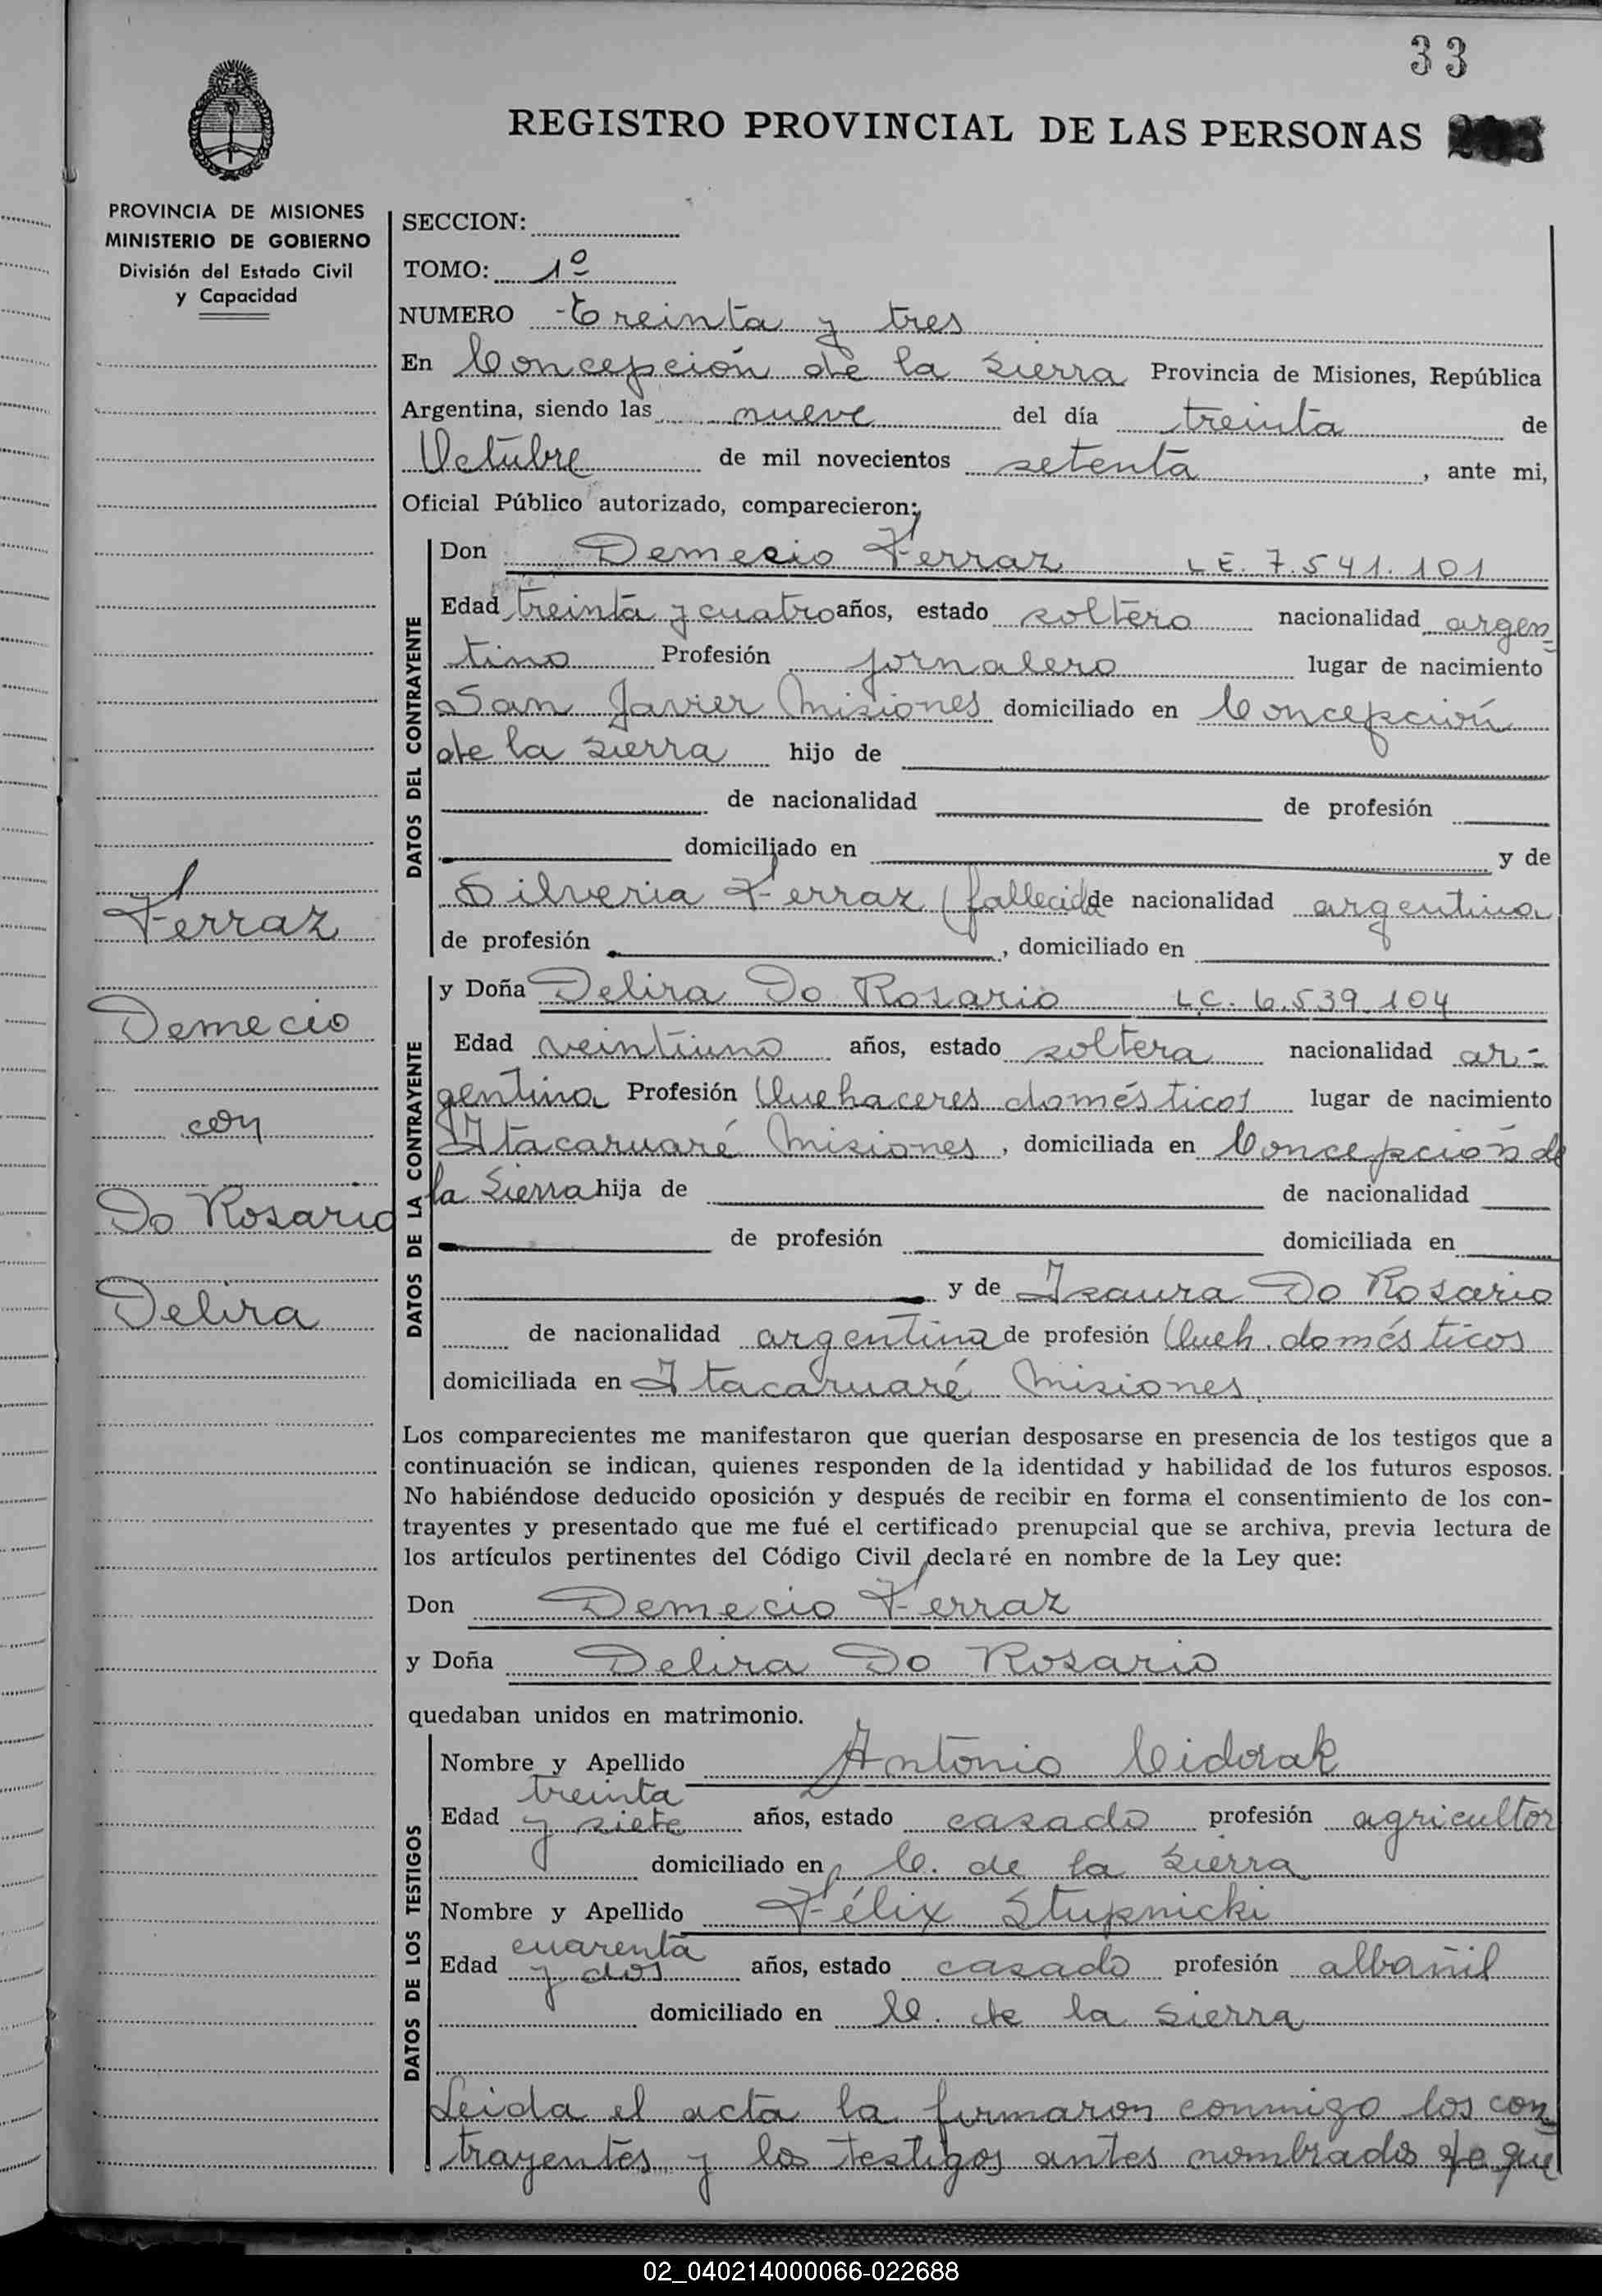 33
REGISTRO PROVINCIAL DE LAS PERSONAS
PROVINCIA DE MISIONES
MINISTERIO DE GOBIERNO
División del Estado Civil
y Capacidad
Ferraz
Demecio
con
Do Rosario
Delira
SECCION:
TOMO: 1º
NUMERO Treinta y tres
En Concepción de la Sierra Provincia de Misiones, República
Argentina, siendo las nueve del día treinta de
Octubre de mil novecientos setenta, ante mi,
Oficial Público autorizado, comparecieron:
DATOS DEL CONTRAYENTE
Don Demecio Ferraz L E. 7.541.101
Edad treinta y cuatro años, estado soltero nacionalidad argen
tino Profesión jornalero lugar de nacimiento
San Javier Misiones domiciliado en Concepción
de la Sierra hijo de
de nacionalidad de profesión
domiciliado en y de
Silveria Ferraz (fallecida de nacionalidad argentina
de profesión , domiciliado en
DATOS DE LA CONTRAYENTE
y Doña Delira Do Rosario L.C. 6.539.104
Edad veintiuno años, estado soltera nacionalidad ar-
gentina Profesión Quehaceres domésticos lugar de nacimiento
Itacaruaré Misiones, domiciliada en Concepción de
la Sierra hija de de nacionalidad
de profesión domiciliada en
y de Isaura Do Rosario
de nacionalidad argentina de profesión Queh. domésticos
domiciliada en Itacaruaré Misiones
Los comparecientes me manifestaron que querían desposarse en presencia de los testigos que a
continuación se indican, quienes responden de la identidad y habilidad de los futuros esposos.
No habiéndose deducido oposición y después de recibir en forma el consentimiento de los con-
trayentes y presentado que me fué el certificado prenupcial que se archiva, previa lectura de
los artículos pertinentes del Código Civil declaré en nombre de la Ley que:
Don Demecio Ferraz
y Doña Delira Do Rosario
quedaban unidos en matrimonio.
DATOS DE LOS TESTIGOS
Nombre y Apellido Antonio Cidorak
treinta
Edad y siete años, estado casado profesión agricultor
domiciliado en C. de la Sierra
Nombre y Apellido Félix Stupnicki
cuarenta
Edad y dos años, estado casado profesión albañil
domiciliado en C. de la Sierra
Leida el acta la firmaron conmigo los con-
trayentes y los testigos antes nombrados que
02_040214000066-022688